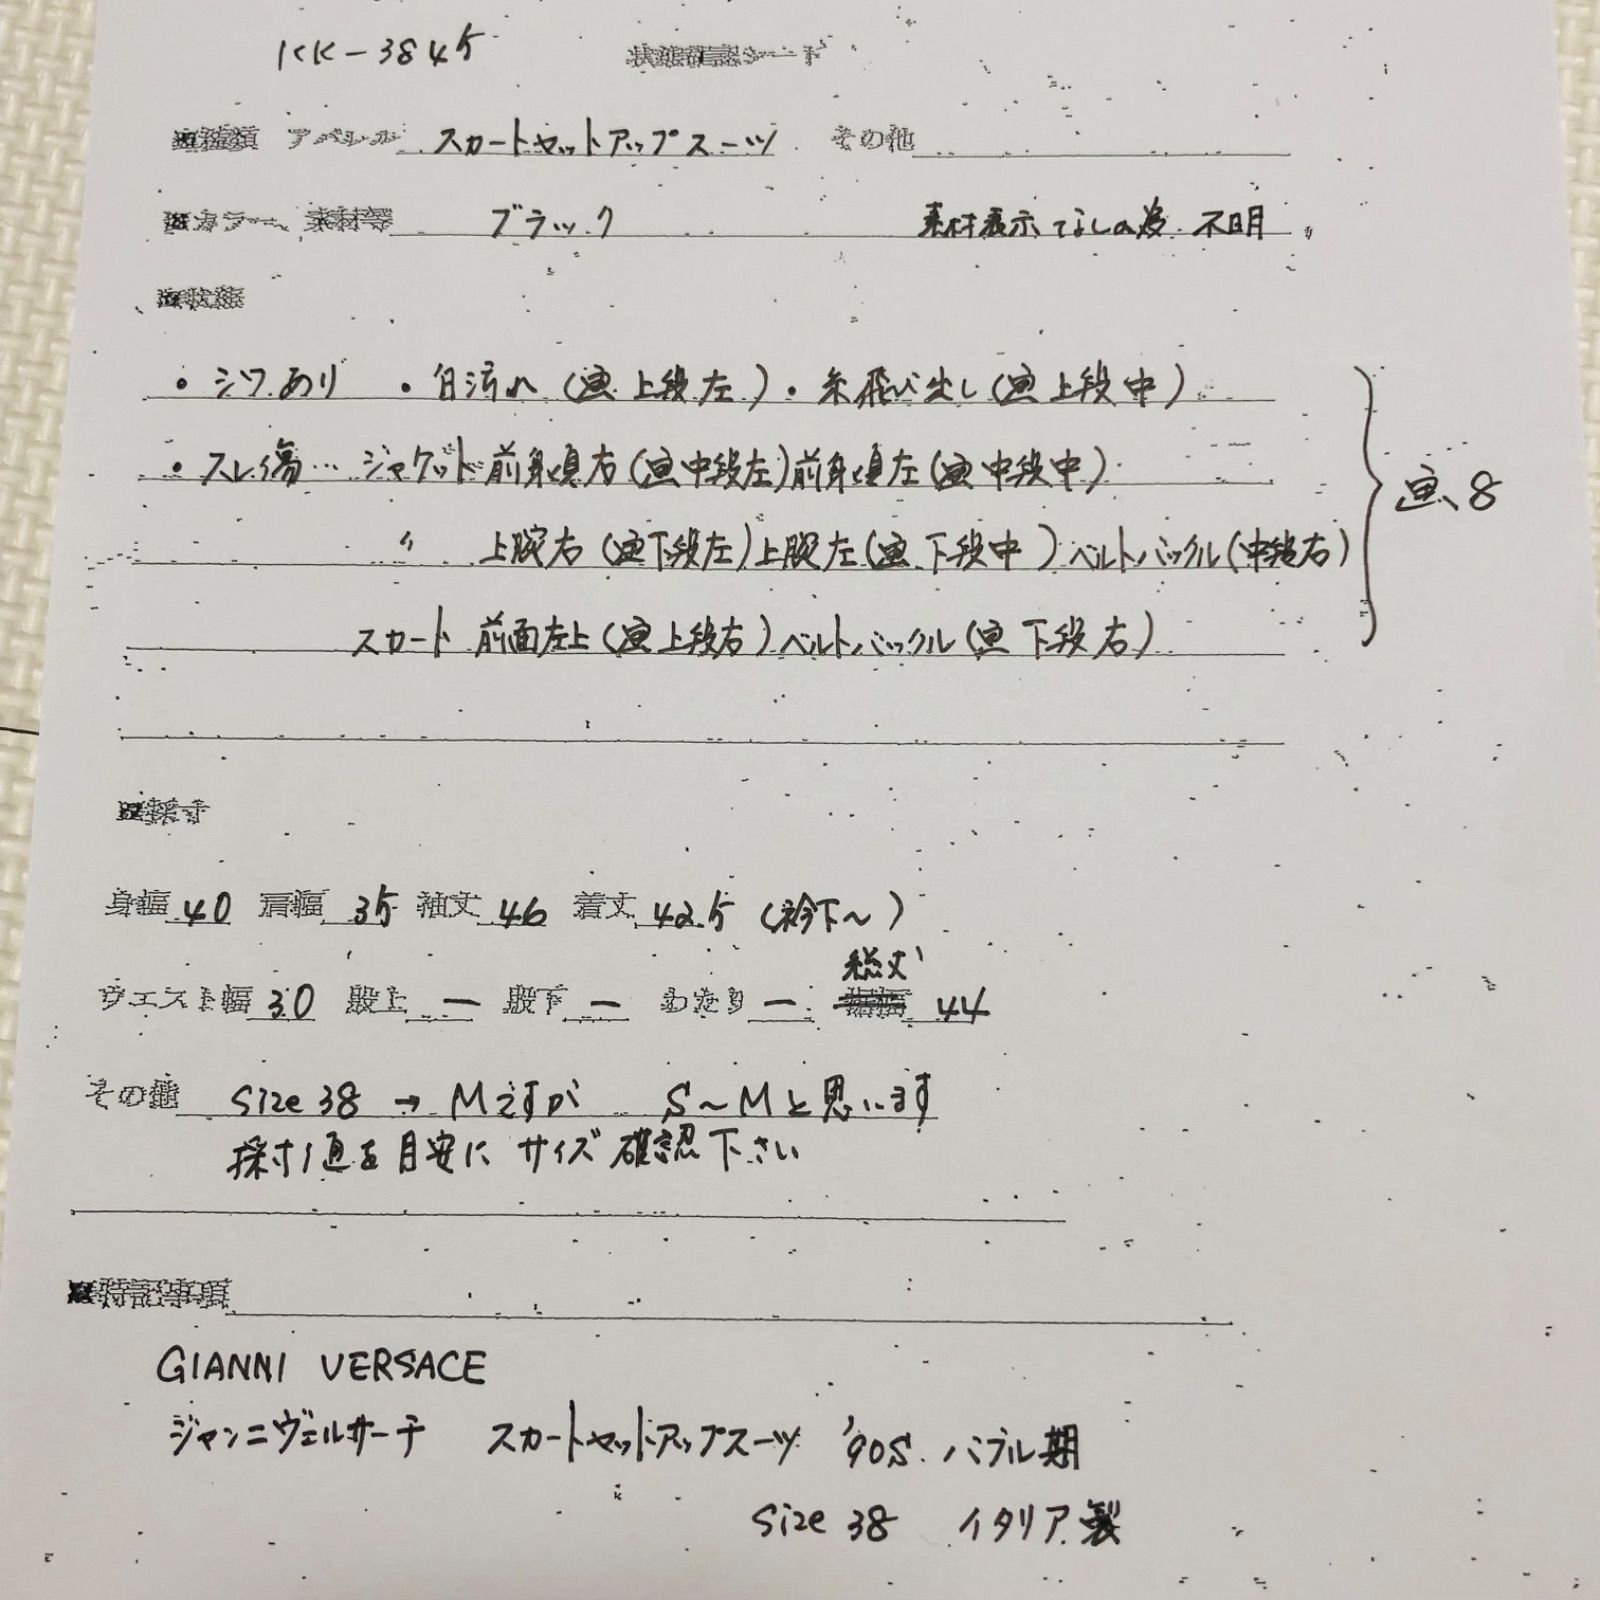 KK-3845 状態確認シート
■種類 アパレル スカートセットアップスーツ その他
■カラー、素材等 ブラック 素材表示なしの為 不明
■状態
・シワあり ・白汚れ(画 上段左)・糸飛び出し(画 上段中)
・スレ傷… ジャケット前身頃右(画中段左)前身頃左(画 中段中)
〃 上腕右(画下段左)上腕左(画 下段中)ベルトバックル(中段右)
画、8
スカート 前面左上(画上段右)ベルトバックル(画 下段右)
■採寸
身幅 40 肩幅 35 袖丈 46 着丈 42.5 (衿下〜)
総丈
ウエスト幅 30 股上 ー 股下 ー わたり ー 裾幅 44
その他 Size 38 → Mですが S〜Mと思います
採寸値を目安に サイズ確認下さい
■特記事項
GIANNI VERSACE
ジャンニヴェルサーチ スカートセットアップスーツ '90S. バブル期
Size 38 イタリア製